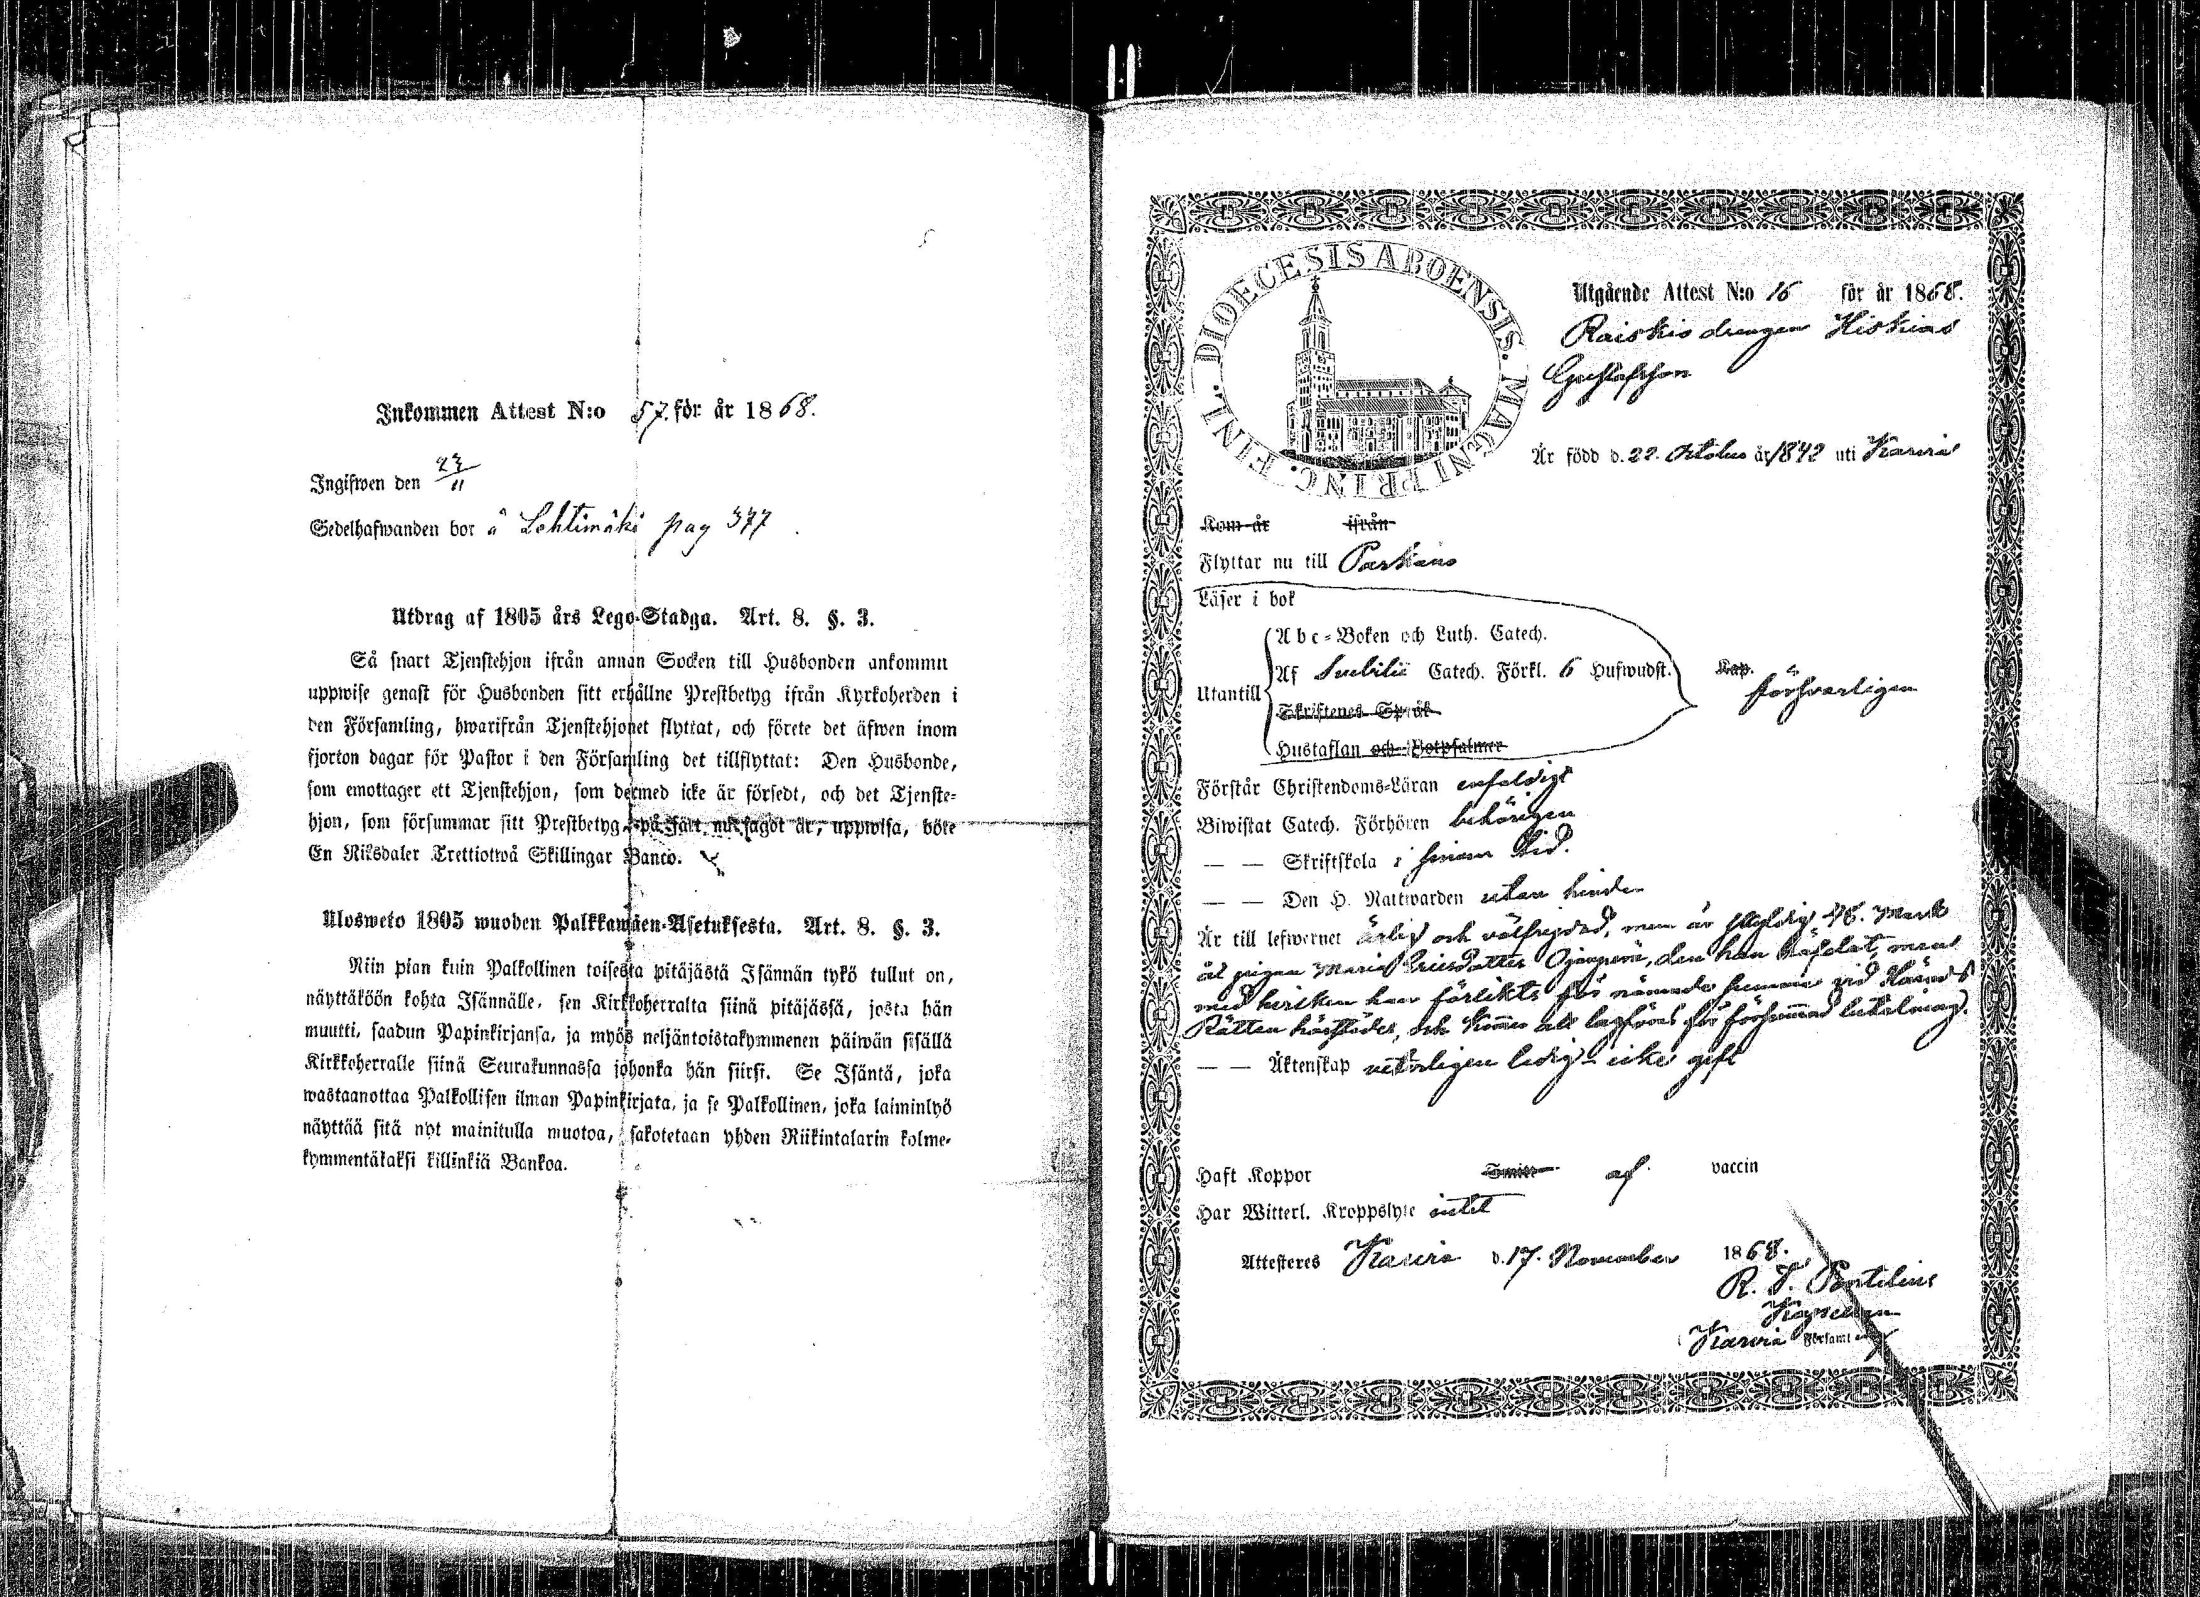 Inkommen Attest N:o 57. för år 1868.
Ingifwen den 23/11
Sedelhafwanden bor å Lehtimäki pag 377
Utdrag af 1805 års Lego-Stadga. Art. 8. §. 3.
Så snart Tjenstehjon ifrån annan Socken till Husbonden ankommit
uppwise genast för Husbonden sitt erhållne Prestbetyg ifrån Kyrkoherden i
den Församling, hwarifrån Tjenstehjonet flyttat, och förete det äfwen inom
fjorton dagar för Pastor i den Församling det tillflyttat: Den Husbonde,
som emottager ett Tjenstehjon, som dermed icke är försedt, och det Tjenste-
hjon, som försummar sitt Prestbetyg, på sätt nu sagdt är, uppwisa, böte
En Riksdaler Trettiotwå Skillingar Banco.
Ulosweto 1805 wuoden Palkkawäen-Asetuksesta. Art. 8. §. 3.
Niin pian kuin Palkollinen toisesta pitäjästä Isännän tykö tullut on,
näyttäköön kohta Isännälle, sen Kirkkoherralta siinä pitäjässä, josta hän
muutti, saadun Papinkirjansa, ja myös neljäntoistakymmenen päiwän sisällä
Kirkkoherralle siinä Seurakunnassa johonka hän siirsi. Se Isäntä, joka
wastaanottaa Palkollisen ilman Papinkirjata, ja se Palkollinen, joka laiminlyö
näyttää sitä nyt mainitulla muotoa, sakotetaan yhden Riikintalarin kolme-
kymmentäkaksi killinkiä Bankoa.
DIOECESIS ABOENSIS. MAGNI PRINC. FINL.
Utgående Attest N:o 16 för år 1868.
Raiskio drengen Hiskias
Gustafsson
Är född d. 22. Oktober år 1842 uti Karvia
Kom år ifrån
Flyttar nu till Parkano
Läser i bok
Abc-Boken och Luth. Catech.
Utantill Af Svebilii Catech. Förkl. 6 Hufwudst. Kap. försvarligen
Skriftenes Språk
Hustaflan och Botpsalmer
Förstår Christendoms-Läran enfaldigt
Biwistat Catech. Förhören behörigen
— — Skriftskola i sinom tid.
— — Den H. Nattwarden utan hinder
Är till lefwernet ärlig och välfrejdad, men är skyldig 48. Mark
åt pigan Maria Ericsdotter, den han häfdat, men
med hvilken han förlikts för nämnde summa vid Härads
Rätten härstädes, och kommer att lagföras för försummad betalning.
— — Äktenskap veterligen ledig - icke gift
Haft Koppor af vaccin
Har Witterl. Kroppslyte intet
Attesteres Karvia d. 17. November 1868.
R. T. Pontelius
Kapellan
Karvia Församl